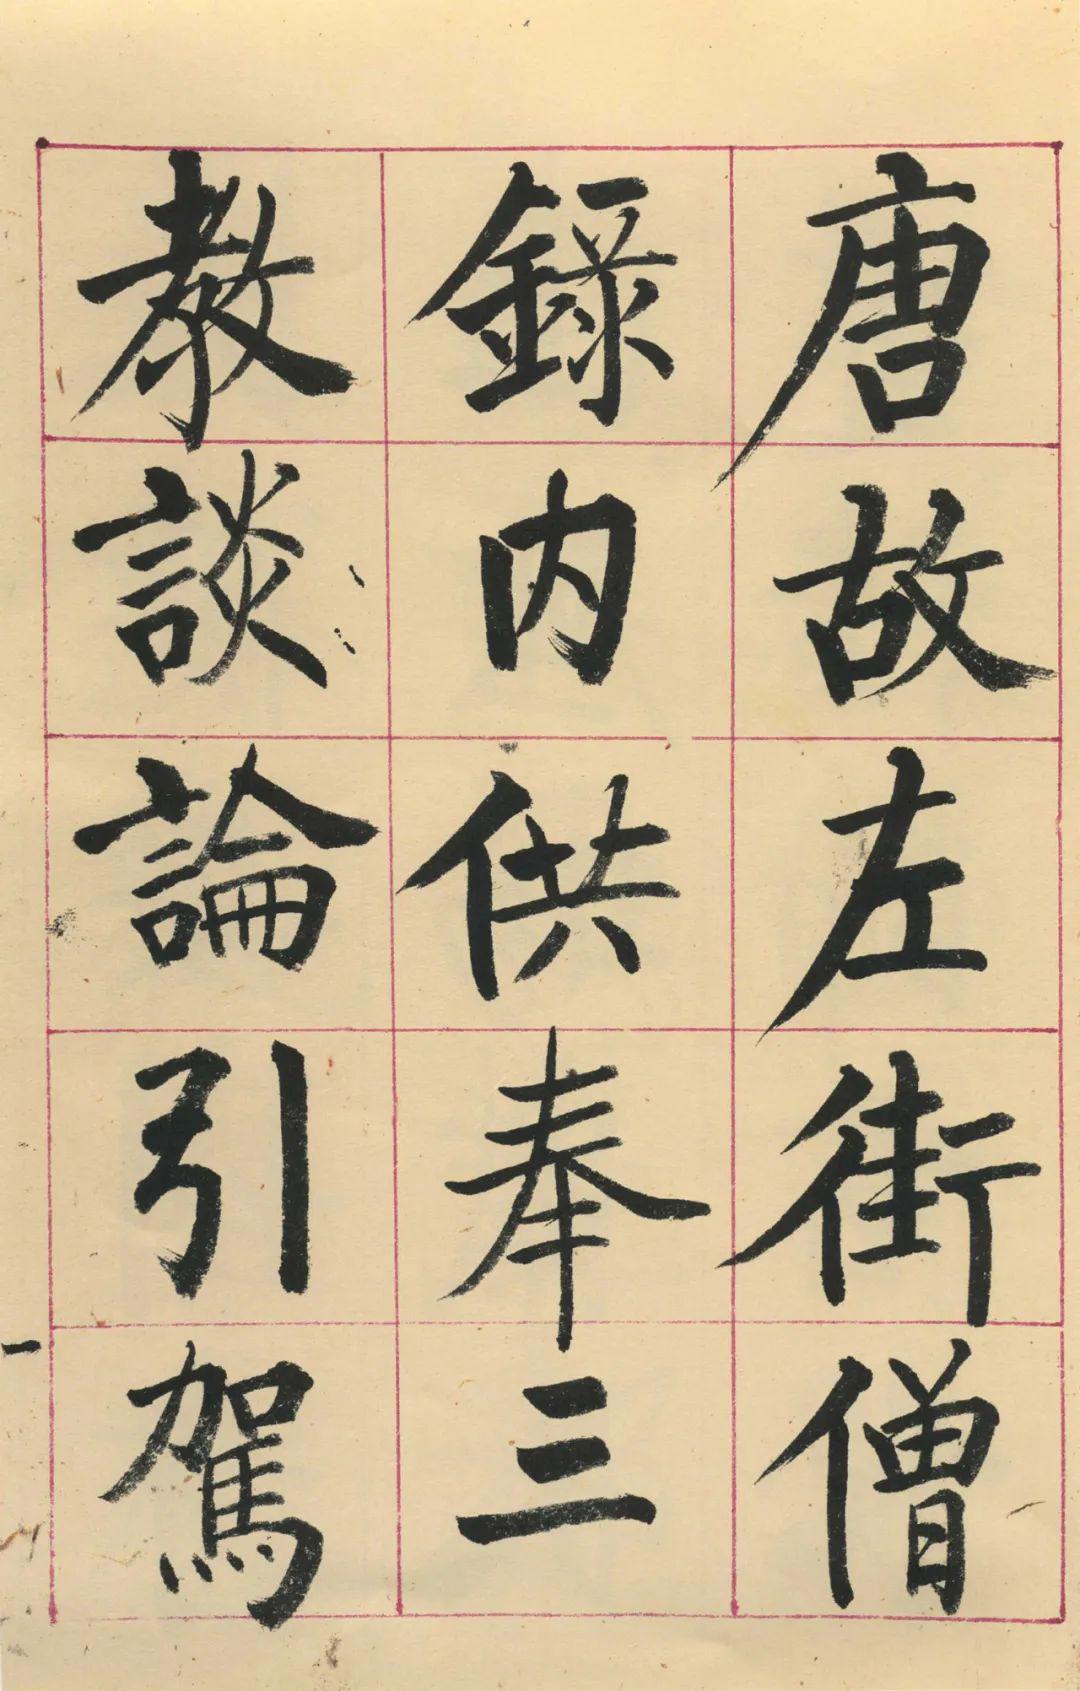 唐故左街僧
錄内供奉三
教談論引駕
一